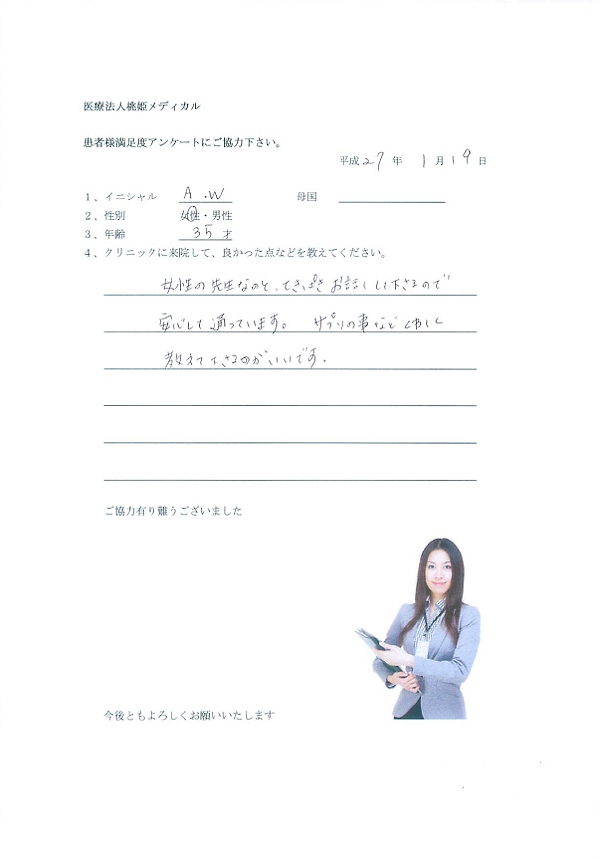 医療法人桃姫メディカル
患者様満足度アンケートにご協力下さい。
平成27年 1月19日
1、イニシャル A.W 母国
2、性別 女性・男性
3、年齢 35才
4、クリニックに来院して、良かった点などを教えてください。
女性の先生なので、てきぱき お話しし下さるので
安心して通っています。 サプリの事など くわしく
教えて下さるのがいいです。
ご協力有り難うございました
今後ともよろしくお願いいたします